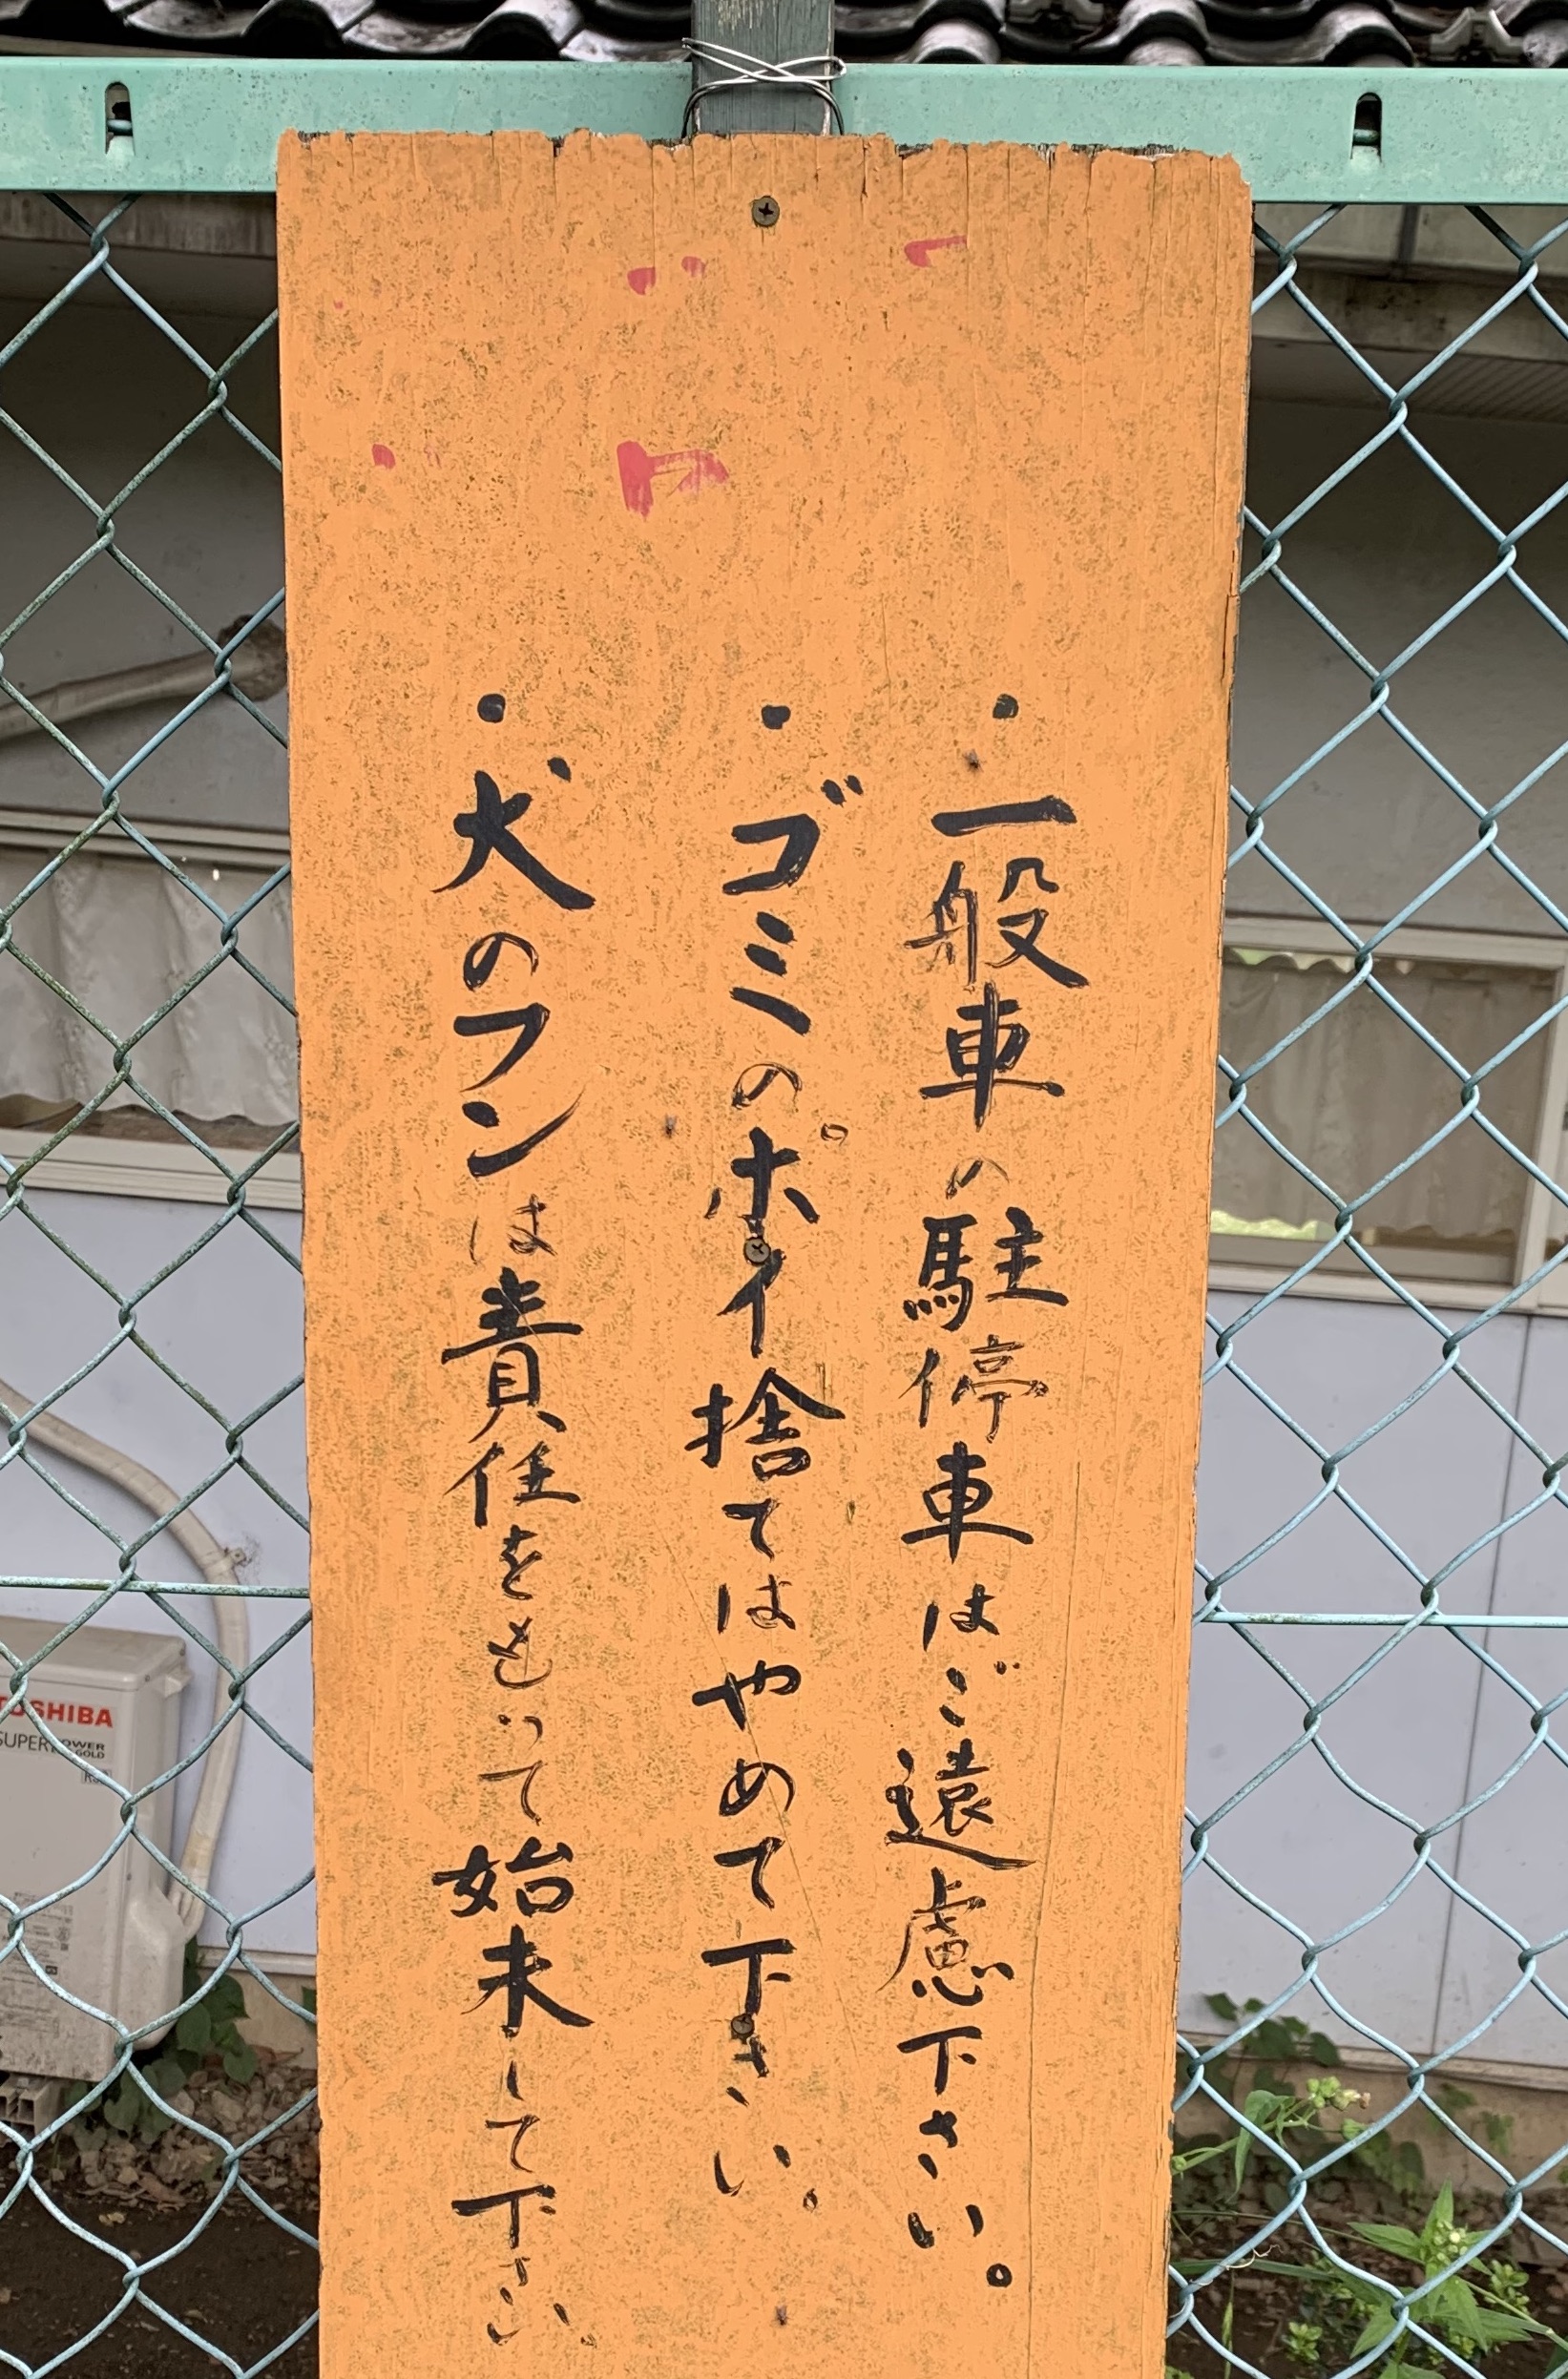 ・一般車の駐停車はご遠慮下さい。
・ゴミのポイ捨てはやめて下さい。
・犬のフンは責任をもって始末して下さい。
TOSHIBA
SUPER POWER
GOLD